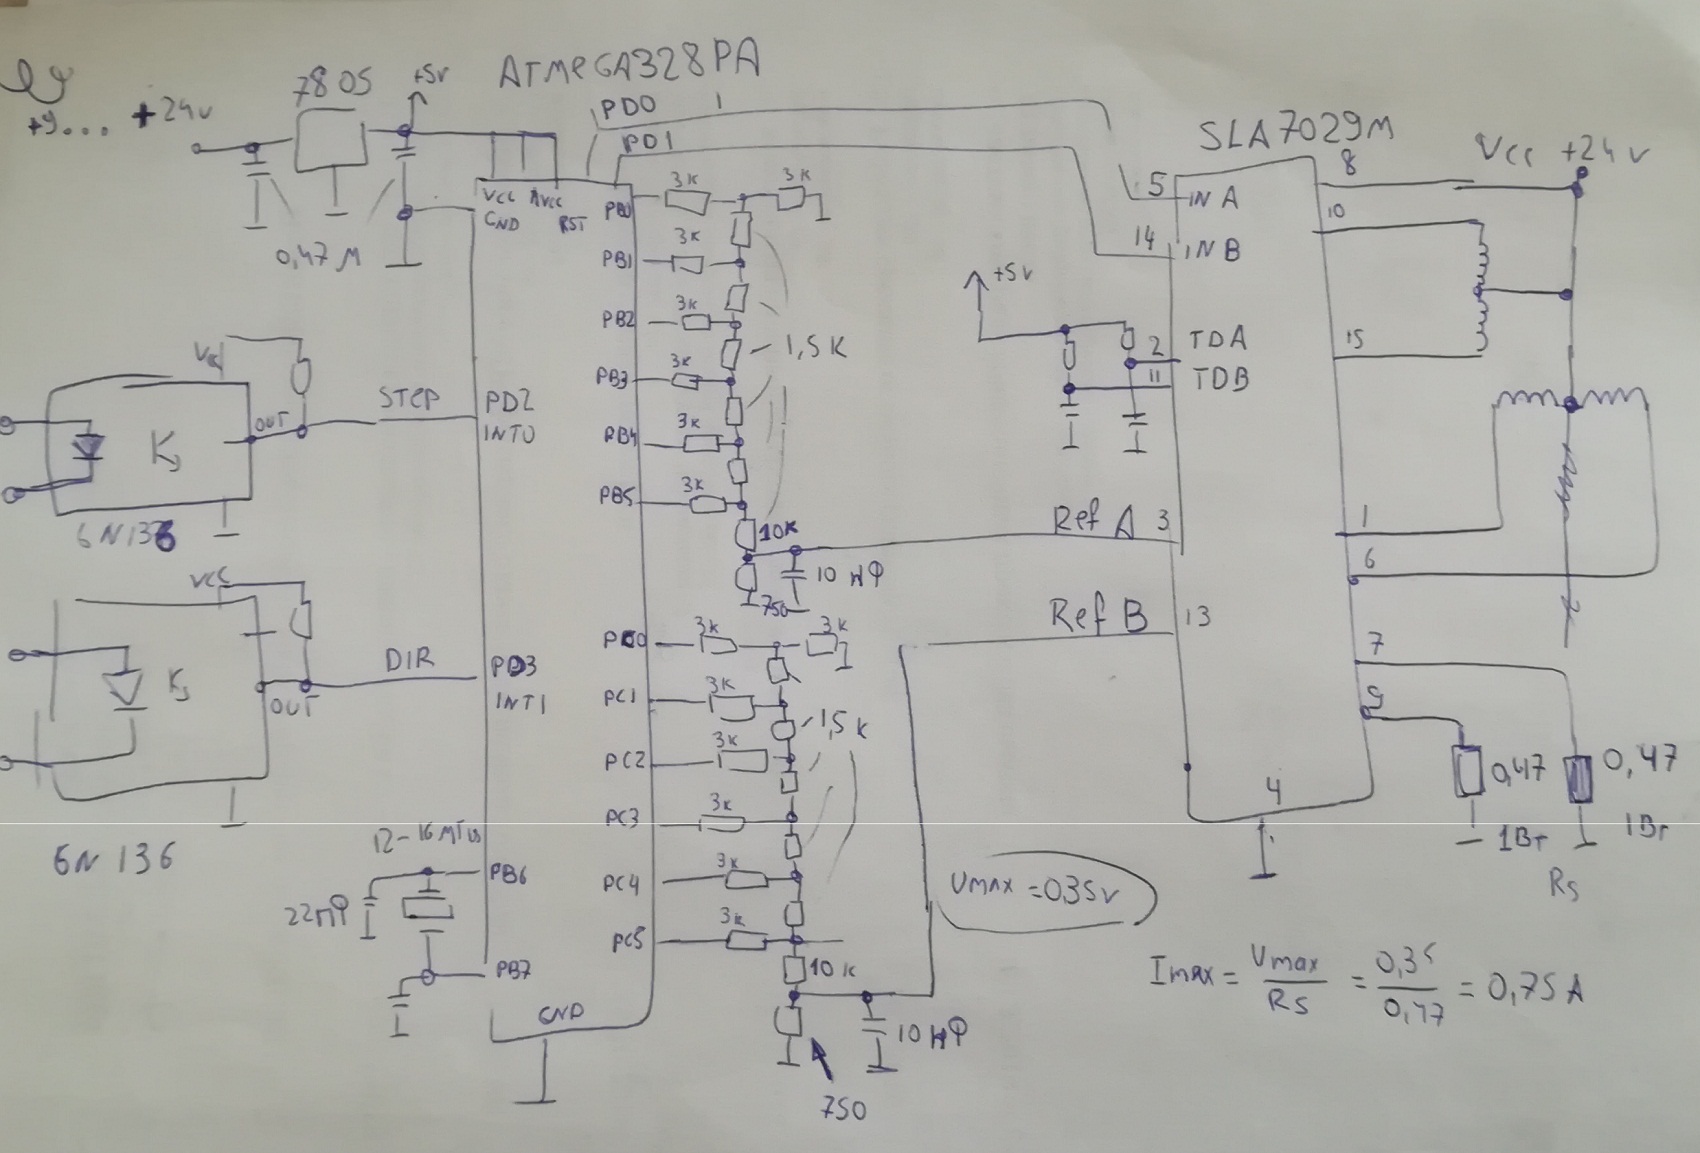 ATMEGA328PA
7805
+5v
+9... +24v
0,47 M
PD0 1
PD1
SLA7029M
Vcc +24v
VCC AVCC
GND RST
PB0
3K
3K
PB1
3K
PB2
3K
PB3
3K
PB4
3K
PB5
3K
1,5K
10K
10 нФ
750
5 IN A
14 IN B
+5v
2 TDA
11 TDB
Ref A 3
Ref B 13
8
10
15
1
6
7
9
4
Vcc
OUT
STEP
PD2
INT0
6N136
VCC
OUT
DIR
PD3
INT1
6N136
12-16 МГц
22пФ
PB6
PB7
GND
PC0
3K
3K
PC1
3K
PC2
3K
PC3
3K
PC4
3K
PC5
3K
1,5K
10K
10 нФ
750
Umax = 0,35v
0,47
1Вт
0,47
1Вт
Rs
Imax = Umax / Rs = 0,35 / 0,47 = 0,75 A